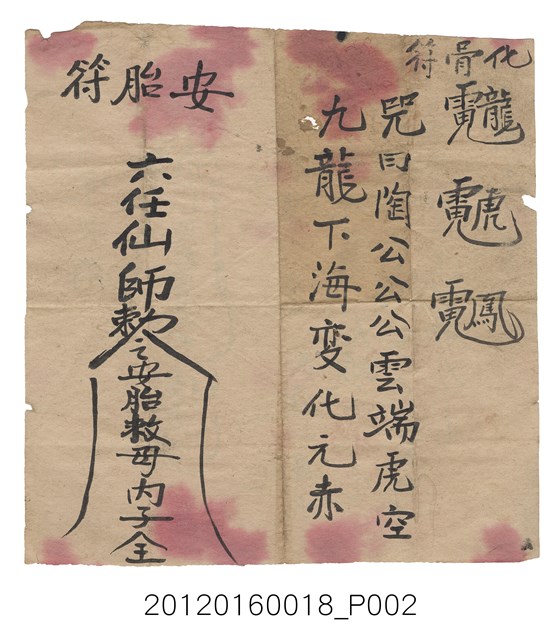 化骨符
咒曰陶公公公雲端虎空
九龍下海変化元赤
安胎符
六任仙師勅令安胎救母內子全
20120160018_P002